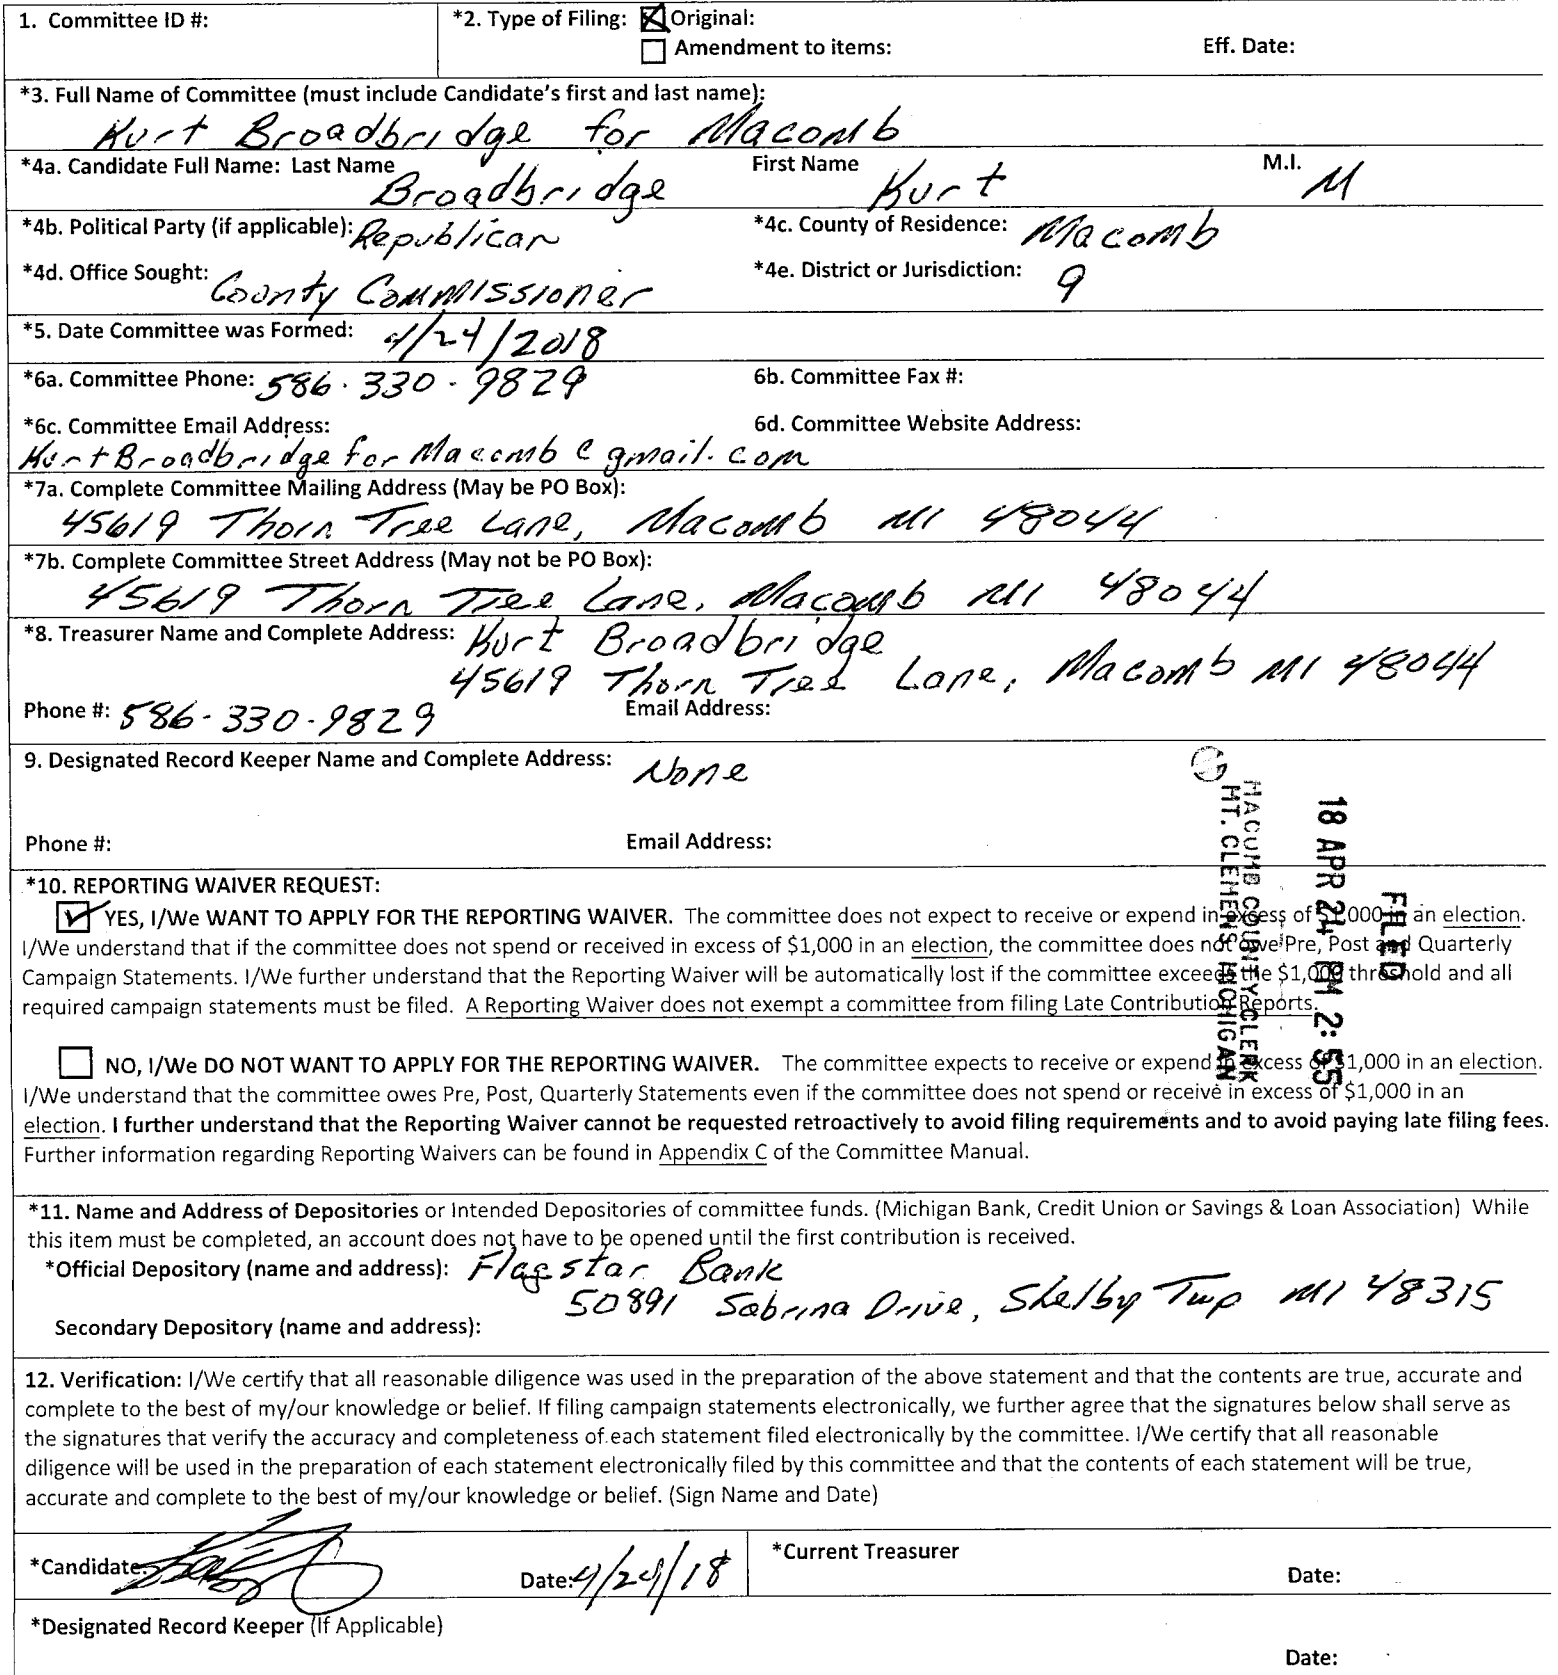 1. Committee ID #:
*2. Type of Filing: Original:
Amendment to items: Eff. Date:
*3. Full Name of Committee (must include Candidate's first and last name):
Kurt Broadbridge for Macomb
*4a. Candidate Full Name: Last Name Broadbridge First Name Kurt M.I. M
*4b. Political Party (if applicable): Republican *4c. County of Residence: Macomb
*4d. Office Sought: County Commissioner *4e. District or Jurisdiction: 9
*5. Date Committee was Formed: 4/24/2018
*6a. Committee Phone: 586-330-9829 6b. Committee Fax #:
*6c. Committee Email Address: 6d. Committee Website Address:
KurtBroadbridgeforMacomb@gmail.com
*7a. Complete Committee Mailing Address (May be PO Box):
45619 Thorn Tree Lane, Macomb MI 48044
*7b. Complete Committee Street Address (May not be PO Box):
45619 Thorn Tree Lane, Macomb MI 48044
*8. Treasurer Name and Complete Address: Kurt Broadbridge
45619 Thorn Tree Lane, Macomb MI 48044
Phone #: 586-330-9829 Email Address:
9. Designated Record Keeper Name and Complete Address: None
Phone #: Email Address:
MACOMB COUNTY CLERK
MT. CLEMENS MICHIGAN
18 APR 24 PM 2:55
FILED
*10. REPORTING WAIVER REQUEST:
YES, I/We WANT TO APPLY FOR THE REPORTING WAIVER. The committee does not expect to receive or expend in excess of $1,000 in an election.
I/We understand that if the committee does not spend or received in excess of $1,000 in an election, the committee does not owe Pre, Post and Quarterly
Campaign Statements. I/We further understand that the Reporting Waiver will be automatically lost if the committee exceeds the $1,000 threshold and all
required campaign statements must be filed. A Reporting Waiver does not exempt a committee from filing Late Contribution Reports.
NO, I/We DO NOT WANT TO APPLY FOR THE REPORTING WAIVER. The committee expects to receive or expend in excess of $1,000 in an election.
I/We understand that the committee owes Pre, Post, Quarterly Statements even if the committee does not spend or receive in excess of $1,000 in an
election. I further understand that the Reporting Waiver cannot be requested retroactively to avoid filing requirements and to avoid paying late filing fees.
Further information regarding Reporting Waivers can be found in Appendix C of the Committee Manual.
*11. Name and Address of Depositories or Intended Depositories of committee funds. (Michigan Bank, Credit Union or Savings & Loan Association) While
this item must be completed, an account does not have to be opened until the first contribution is received.
*Official Depository (name and address): Flagstar Bank
50891 Sabrina Drive, Shelby Twp MI 48315
Secondary Depository (name and address):
12. Verification: I/We certify that all reasonable diligence was used in the preparation of the above statement and that the contents are true, accurate and
complete to the best of my/our knowledge or belief. If filing campaign statements electronically, we further agree that the signatures below shall serve as
the signatures that verify the accuracy and completeness of each statement filed electronically by the committee. I/We certify that all reasonable
diligence will be used in the preparation of each statement electronically filed by this committee and that the contents of each statement will be true,
accurate and complete to the best of my/our knowledge or belief. (Sign Name and Date)
*Candidate Date: 4/24/18 *Current Treasurer Date:
*Designated Record Keeper (If Applicable)
Date: